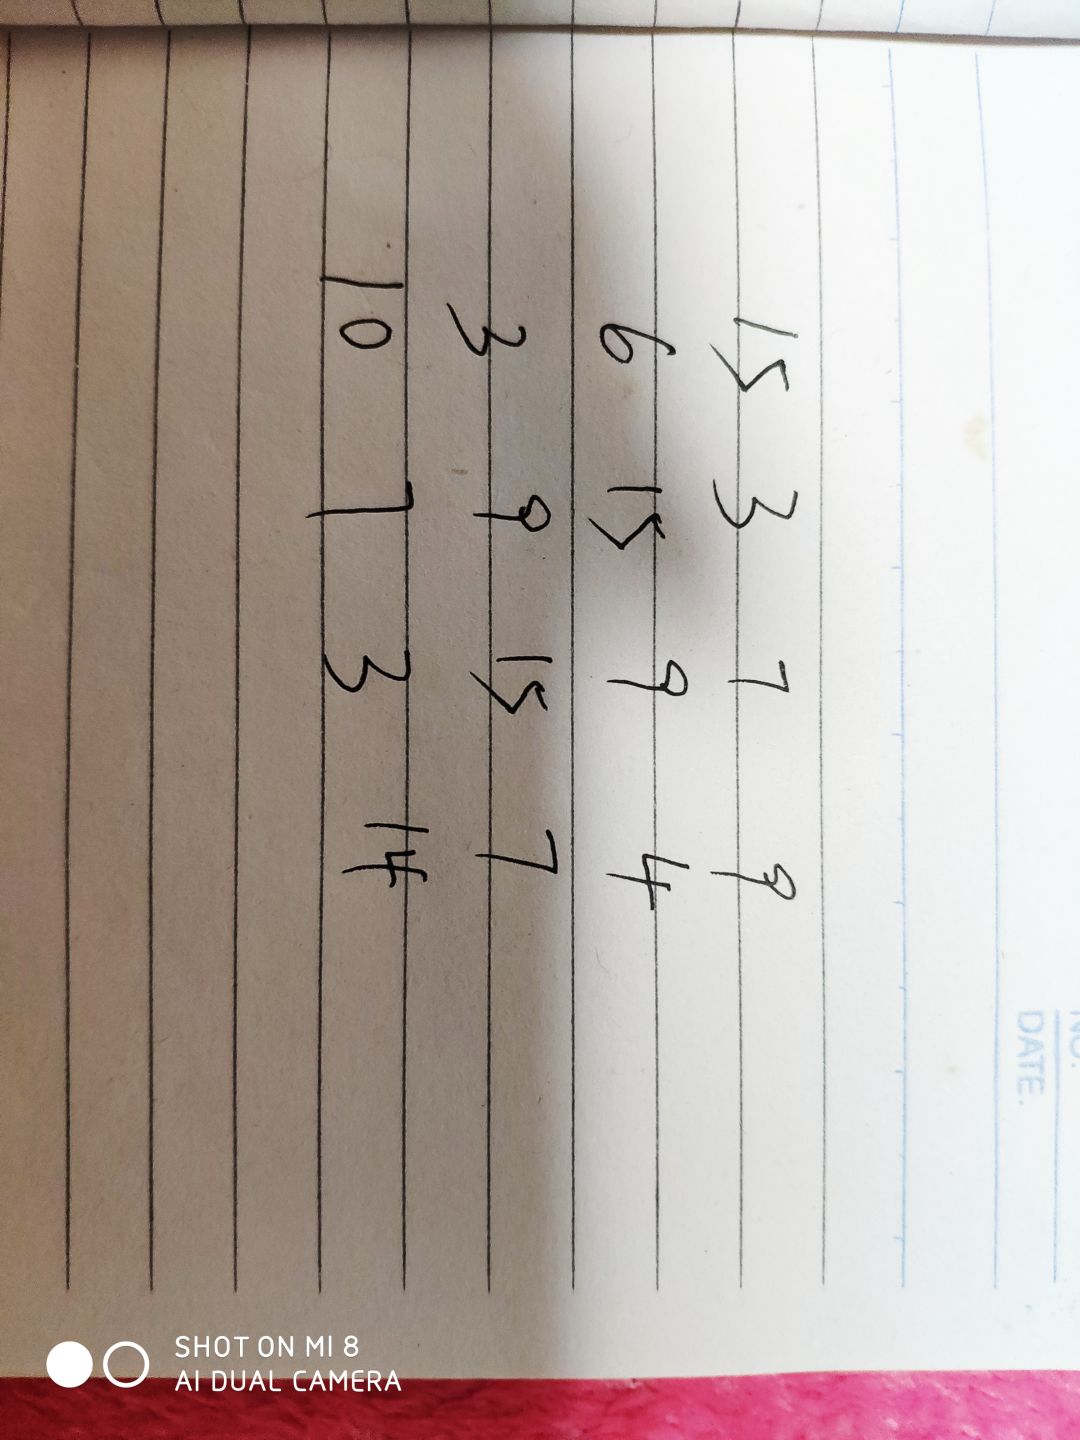 NO.
DATE.
15 3 7 9
6 15 9 4
3 9 15 7
10 7 3 14
SHOT ON MI 8
AI DUAL CAMERA